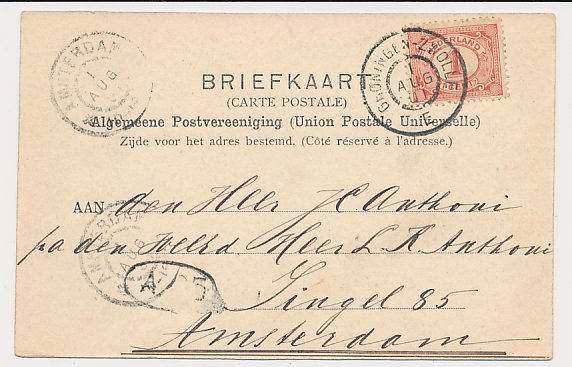 AMSTERDAM
1
AUG
GRONINGEN-ZWOLLE
1
AUG
01
E
NEDERLAND
1
BRIEFKAART
(CARTE POSTALE)
Algemeene Postvereeniging (Union Postale Universelle)
Zijde voor het adres bestemd. (Côté réservé à l'adresse.)
AAN den Heer J C Anthoni
pa den Weled Heer L. R. Anthoni
Singel 85
Amsterdam
AUG